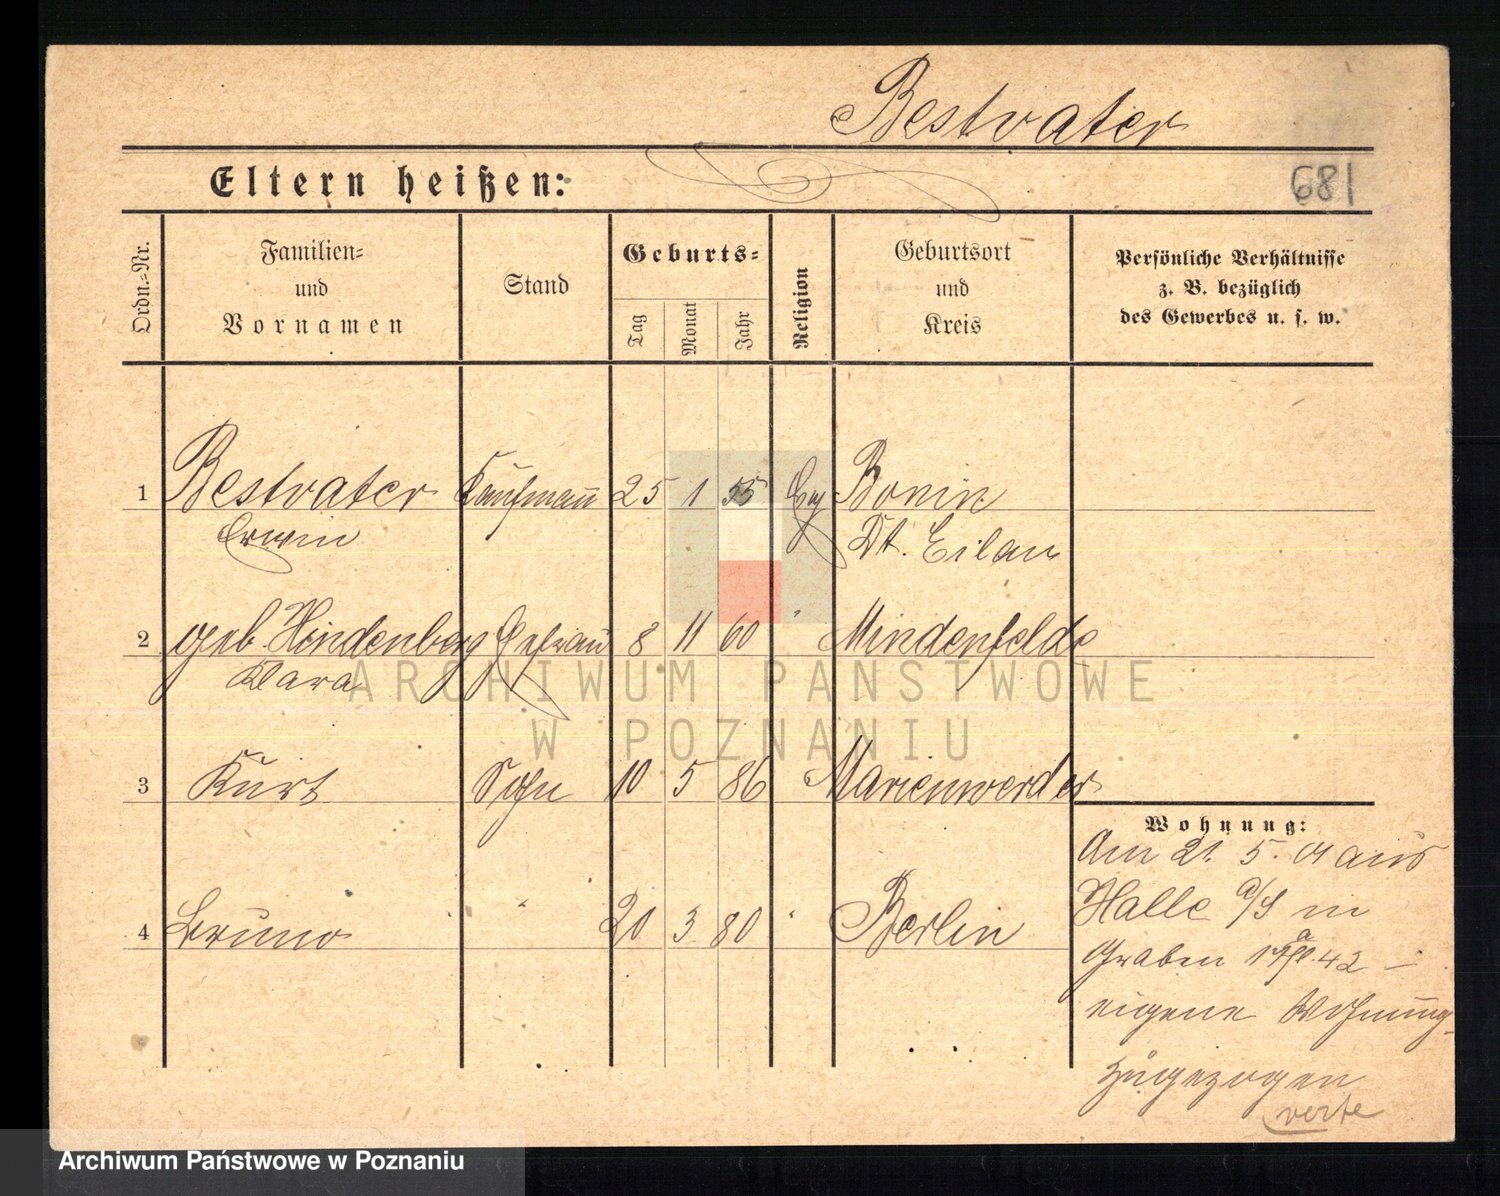 Bestvater
Eltern heißen:
681
Ordn.=Nr.
Familien=
und
Vornamen
Stand
Geburts=
Tag
Monat
Jahr
Religion
Geburtsort
und
Kreis
Persönliche Verhältnisse
z. B. bezüglich
des Gewerbes u. s. w.
1 Bestvater Kaufmann 25 1 55 Ev Bonin
Erwin Dt. Eilau
2 geb. Hindenberg Ehefrau 8 11 60 " Mindenfelde
Klara
ARCHIWUM PAŃSTWOWE
W POZNANIU
3 Kurt Sohn 10 5 86 Marienwerder
Wohnung:
Am 21. 5. 01 aus
Halle a/S in
4 Bruno " 20 3 80 " Berlin
Graben 42 –
eigene Wohnung
zugezogen
verte
Archiwum Państwowe w Poznaniu